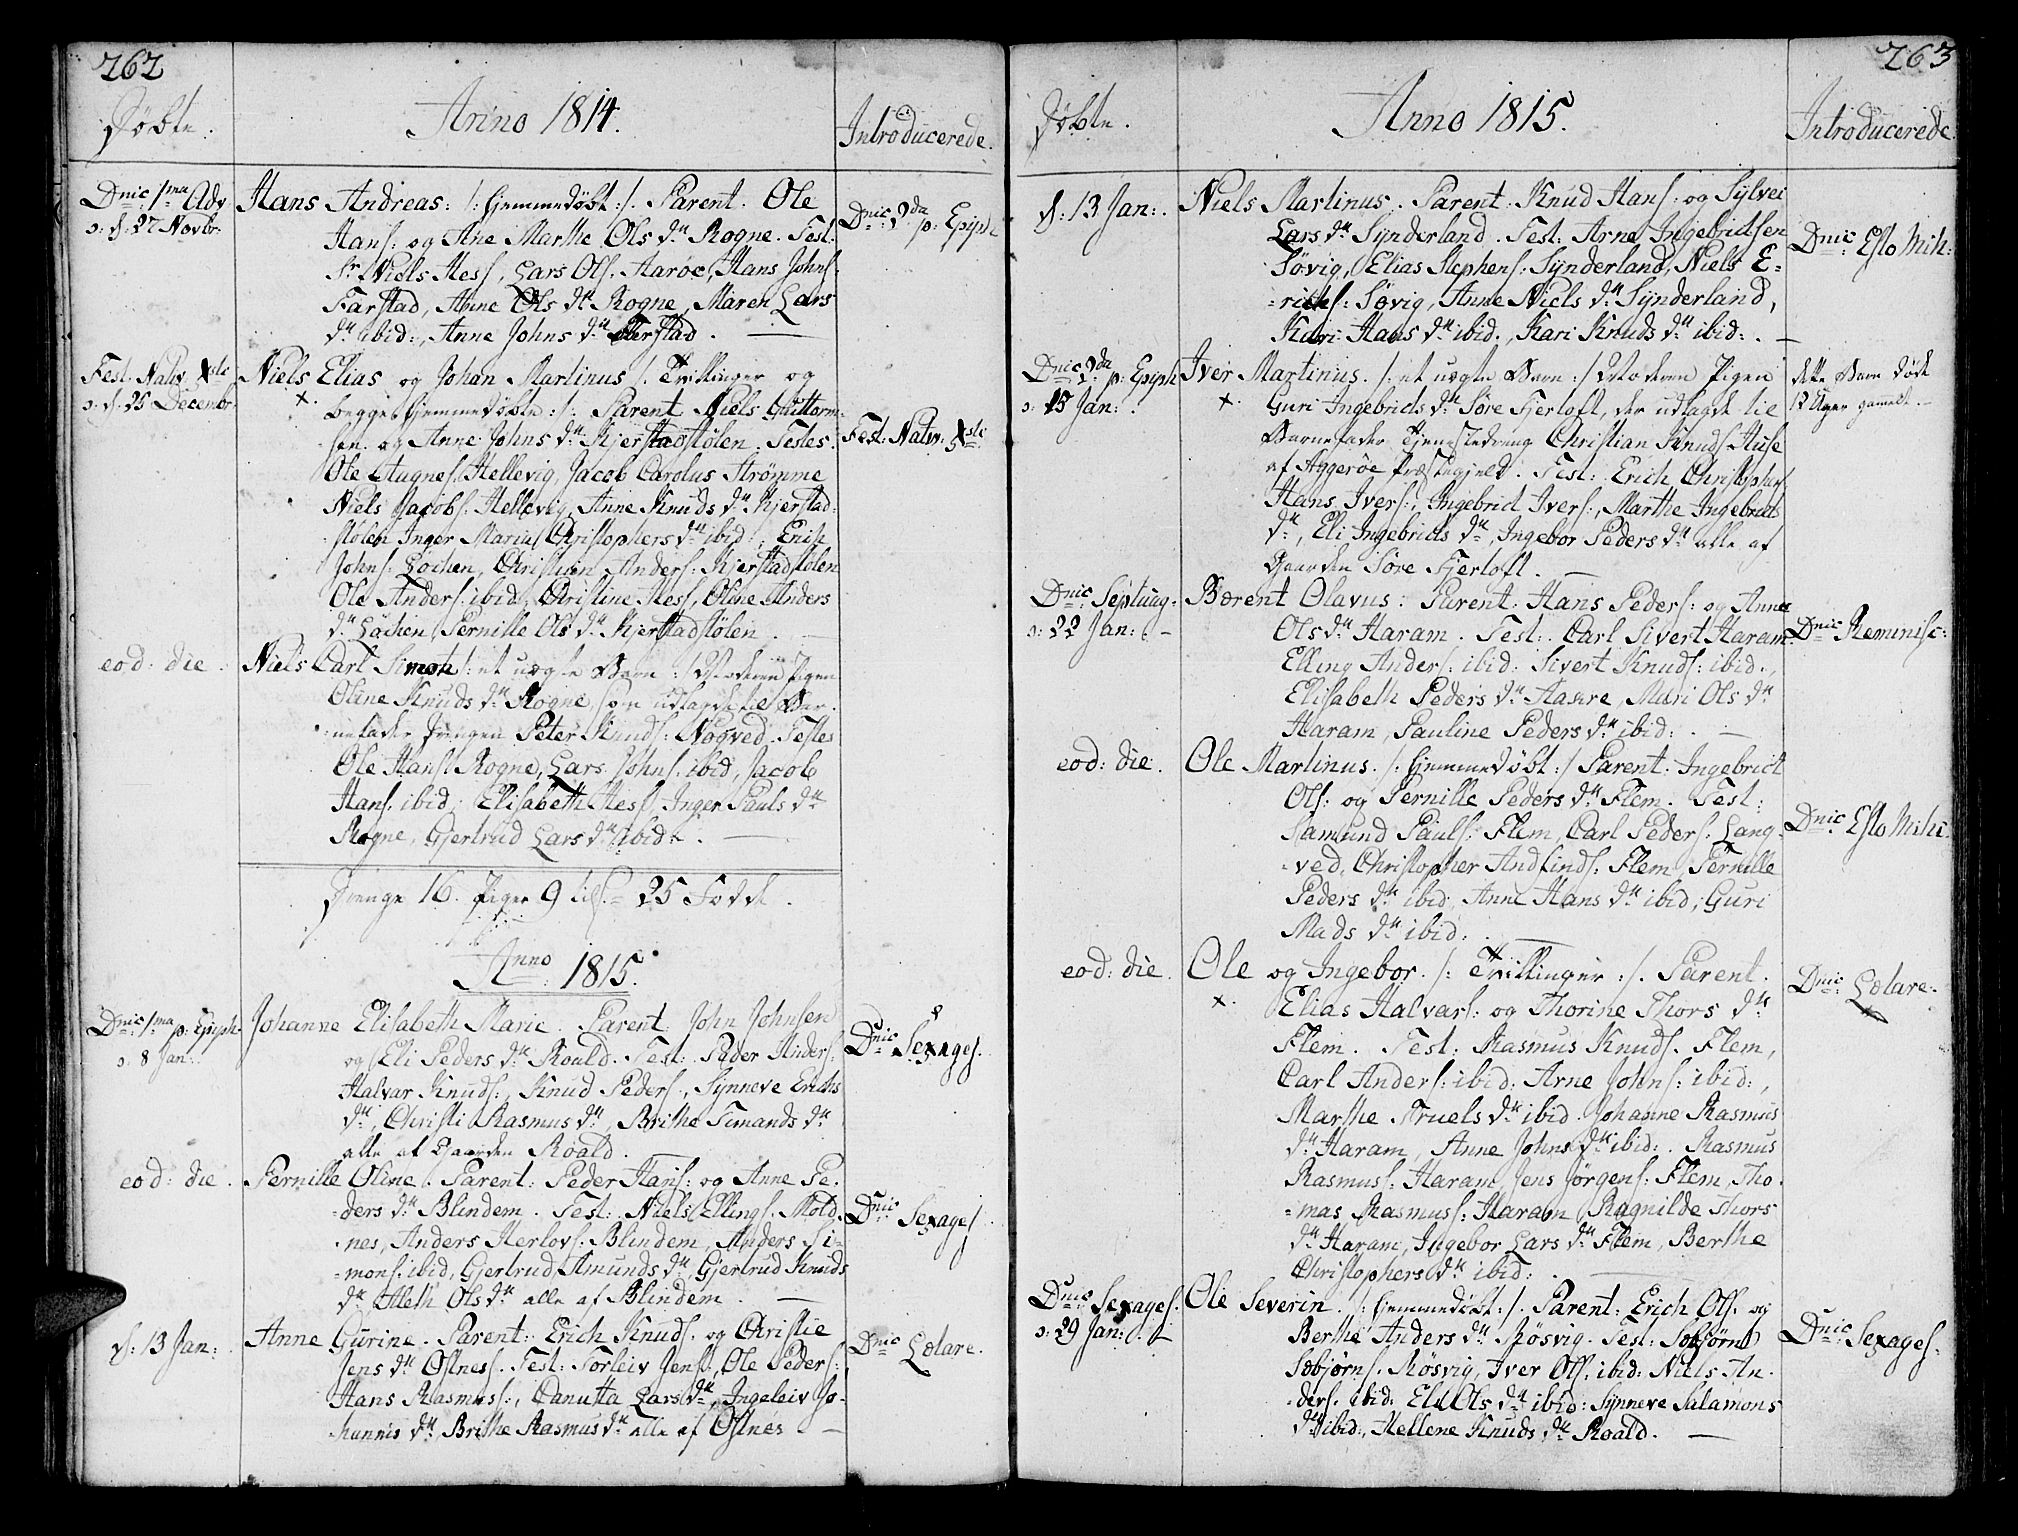 262
Døbte.
Anno 1814.
Introducerede.
Dnic: 1ma Adv
o: d: 27 Novbr:
Hans Andreas: /: hjemmedøbt :/. Parent. Ole
Hans: og Ane Marthe Ols dtr Rogne. Test:
Sr Niels Hess, Lars Ols. Aarøe, Hans Johns:
Farstad, Anne Ols dtr Rogne, Maren Lars
dtr ibid:, Anne Johns dtr
Dnic: 2da p: Epiph
Fest: Nativ Xsti
o: d: 25 Decembr
Niels Elias og Johan Martinus /: Tvillinger og
begge hjemmedøbte :/: Parent Niels Guttorm-
sen og Anne Johns dtr Kjerstadstølen. Testes.
Ole Augnes. Hellevig, Jacob Carolus Strømme
Niels Jacobs: Hellevig, Anne Knuds dtr Kjerstad-
stølen Inger Maria Christophers dtr ibid:, Erich
Johns: Løchen, Christian Anders: Kjerstadstølen
Ole Anders: ibid; Christine Hess, Oline Anders
dtr Løchen, Pernille Ols dtr Kjerstadstølen.
Fest: Nativ: Xsti
eod: die.
Niels Carl Simon /: et uægte Barn :/ Moderen Pigen
Oline Knuds dtr Rogne, som udlagde til Bar-
nefader Drengen Peter Knuds: Nogved. Testes
Ole Hans: Rogne, Lars Johns: ibid, Jacob
Hans. ibid; Elisabeth Hess, Inger Pauls dtr
Rogne, Gjertrud Lars dtr ibid.
Drenge 16. Piger 9 tils. = 25 Fødde.
Anno 1815.
Dnic: 1ma p: Epiph.
o: 8 Jan:
Johanne Elisabeth Marie. Parent: John Johnsen
og Eli Peders dtr Roald. Test: Peder Anders:
Halvar Knuds:, Knud Peders:, Synneve Erichs
dtr, Christi Rasmus dtr, Brithe Simands dtr
alle af Gaarden Roald.
Dnic: Sexages.
eod: die.
Pernille Oline. Parent: Peder Hans: og Anne Pe-
ders dtr Blindem. Test: Niels Ellings. Mold-
nes, Anders Herlovs. Blindem, Anders Si-
mons. ibid, Gjertrud Amunds dtr, Gjertrud Knuds
dtr, Aleth Ols dtr alle af Blindem.
Dnic: Sexages
d: 13 Jan:
Anne Gurine. Parent: Erich Knuds. og Christie
Jens dtr Østnes. Test: Torleiv Jens:, Ole Peders:
Hans Rasmus:, Danutta Lars dtr, Ingeleiv Jo-
hannis dtr, Brithe Rasmus dtr alle af Østnes
Dnic: Lætare.
263
Døbte.
Anno 1815.
Introducerede
d: 13 Jan:.
Niels Martinus. Parent. Knud Hans: og Sylvei
Lars dtr Synderland. Test: Arne Ingebrictsen
Søvig, Elias Stephens: Synderland, Niels E-
richs: Søvig, Anne Niels dtr Synderland,
Kari Hans dtr ibid:, Kari Knuds dtr ibid:.
Dnic: Esto Mih:
Dnic: 2da p: Epiph
o: 15 Jan:.
Iver Martinus. /: et uægte Barn :/ Moderen Pigen
Guri Ingebricts dtr Søre Fjertoft, der udlagde til
Barnefader Tjenestedreng Christian Knuds: Huse
af Aggerøe Præstegjeld. Test: Erich Christophers
Hans Ivers:, Ingebrict Ivers:, Marthe Ingebricts
dtr, Eli Ingebricts dtr, Ingebor Peders dtr alle af
Gaarden Søre Fjertoft.
dette Barn døde
12 Uger gamelt.
Dnic: Septuag:
o: 22 Jan:.
Bærent Olavus: Parent: Hans Peders: og Anne
Ols dtr Haram. Test: Carl Sivert Haram
Elling Anders. ibid: Sivert Knuds: ibid.,
Elisabeth Peders dtr Haare, Mari Ols dtr
Haram, Pauline Peders dtr ibid:.
Dnic: Reminisc:
eod: die:.
Ole Martinus. /: hjemmedøbt :/ Parent: Ingebrict
Ols: og Pernille Peders dtr Flem. Test:
Samund Pauls. Flem, Carl Peders. Lang-
ved, Christopher Andfinds: Flem, Pernille
Peders dtr ibid, Anne Hans dtr ibid; Guri
Mads dtr ibid:.
Dnic: Esto Mihi
eod: die.
Ole og Ingebor. /: Tvillinger :/. Parent.
Elias Halvars: og Thorine Thors dtr
Flem. Test: Rasmus Knuds. Flem,
Carl Anders: ibid: Arne Johns: ibid:,
Marthe Truels dtr ibid. Johanne Rasmus
dtr Haram, Anne Johns dtr ibid:. Rasmus
Rasmus: Haram, Jens Jørgens: Flem, Tho-
mas Rasmus: Haram, Ragnilde Thors
dtr Haram, Ingebor Lars dtr Flem, Berthe
Christophers dtr ibid:.
Dnic: Lætare.
Dnic: Sexages.
o: 29 Jan:.
Ole Severin. /: hjemmedøbt :/. Parent: Erich Ols. og
Berthe Anders dtr Røsvig. Test: Sæbjørn
Sæbjørns. Røsvig, Iver Ols. ibid: Niels An-
ders. ibid: Eli Ols dtr ibid: Synneve Salamons
dtr ibid:, Hellene Knuds dtr Roald.
Dnic: Sexages.